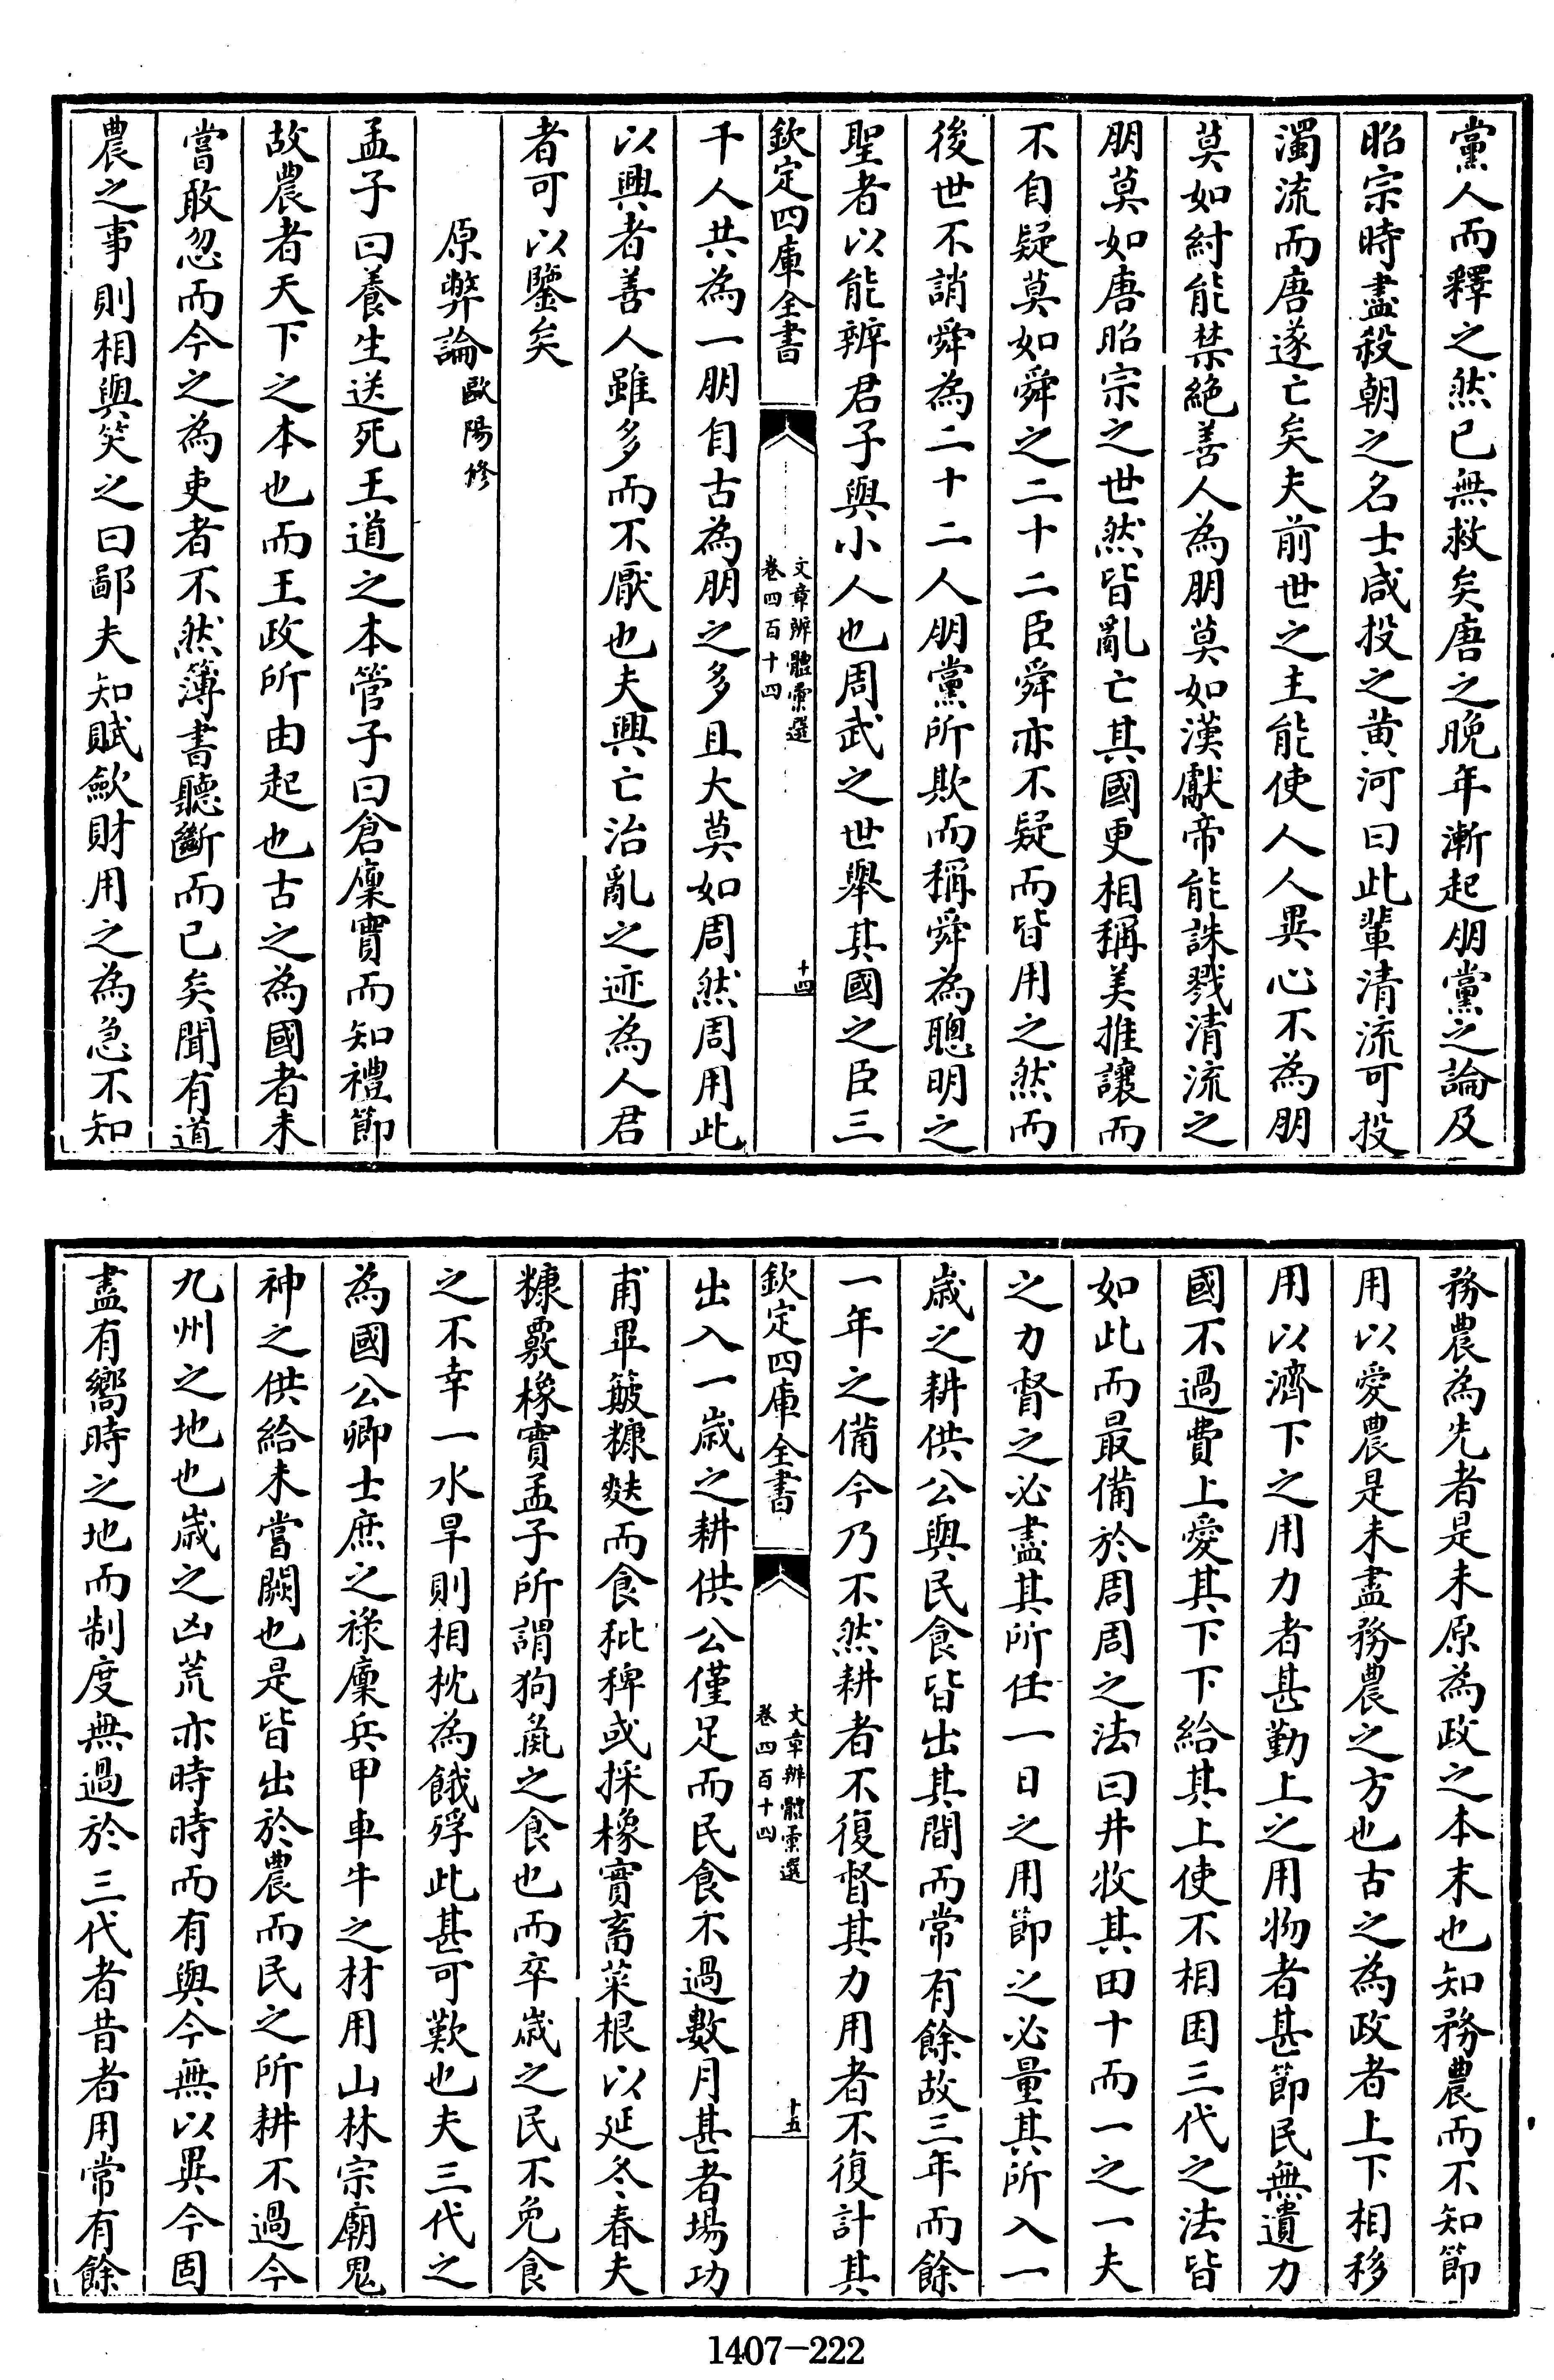 黨人而釋之然已無救矣唐之晚年漸起朋黨之論及
昭宗時盡殺朝之名士咸投之黄河曰此輩清流可投
濁流而唐遂亡矣夫前世之主能使人人異心不為朋
莫如紂能禁絶善人為朋莫如漢獻帝能誅戮清流之
朋莫如唐昭宗之世然皆亂亡其國更相稱美推讓而
不自疑莫如舜之二十二臣舜亦不疑而皆用之然而
後世不誚舜為二十二人朋黨所欺而稱舜為聰明之
聖者以能辨君子與小人也周武之世舉其國之臣三
欽定四庫全書
文章辨體彙選
卷四百十四
十四
千人共為一朋自古為朋之多且大莫如周然周用此
以興者善人雖多而不厭也夫興亡治亂之迹為人君
者可以鑒矣
原弊論 歐陽修
孟子曰養生送死王道之本管子曰倉廩實而知禮節
故農者天下之本也而王政所由起也古之為國者未
嘗敢忽而今之為吏者不然簿書聽斷而已矣聞有道
農之事則相與笑之曰鄙夫知賦歛財用之為急不知
務農為先者是未原為政之本末也知務農而不知節
用以愛農是未盡務農之方也古之為政者上下相移
用以濟下之用力者甚勤上之用物者甚節民無遺力
國不過費上愛其下下給其上使不相困三代之法皆
如此而最備於周周之法曰井收其田十而一之一夫
之力督之必盡其所任一日之用節之必量其所入一
歳之耕供公與民食皆出其間而常有餘故三年而餘
一年之備今乃不然耕者不復督其力用者不復計其
欽定四庫全書
文章辨體彙選
卷四百十四
十五
出入一歳之耕供公僅足而民食不過數月甚者場功
甫畢簸糠麩而食秕稗或採橡實畜菜根以延冬春夫
糠覈橡實孟子所謂狗彘之食也而卒歳之民不免食
之不幸一水旱則相枕為餓殍此甚可歎也夫三代之
為國公卿士庶之禄廩兵甲車牛之材用山林宗廟鬼
神之供給未嘗闕也是皆出於農而民之所耕不過今
九州之地也歳之凶荒亦時時而有與今無以異今固
盡有嚮時之地而制度無過於三代者昔者用常有餘
1407-222